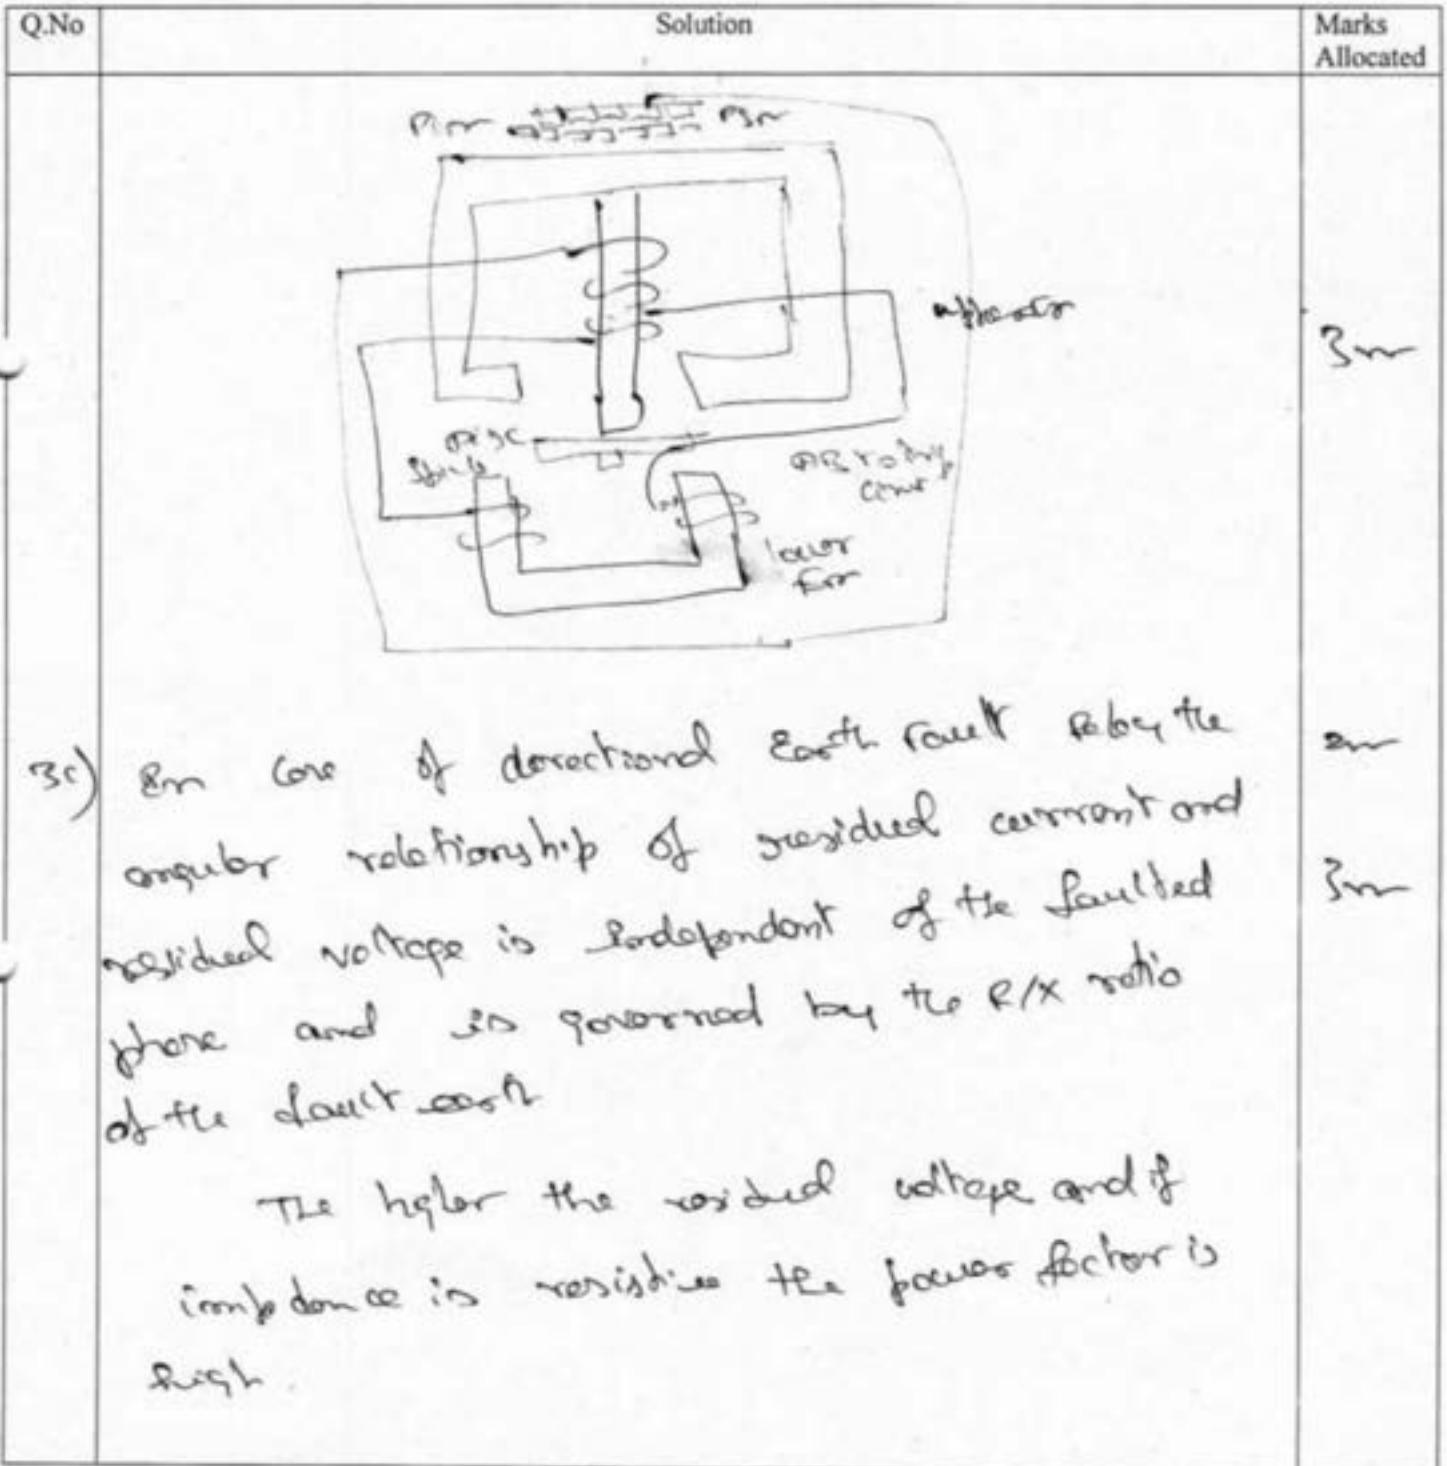 Q.No Solution Marks Allocated
3m
Disc
lower
3c) In case of directional Earth fault relay the 2m
angular relationship of residual current and
residual voltage is independent of the faulted 3m
phase and is governed by the R/X ratio
of the fault earth
The higher the residual voltage and if
impedance is resistive the power factor is
high.